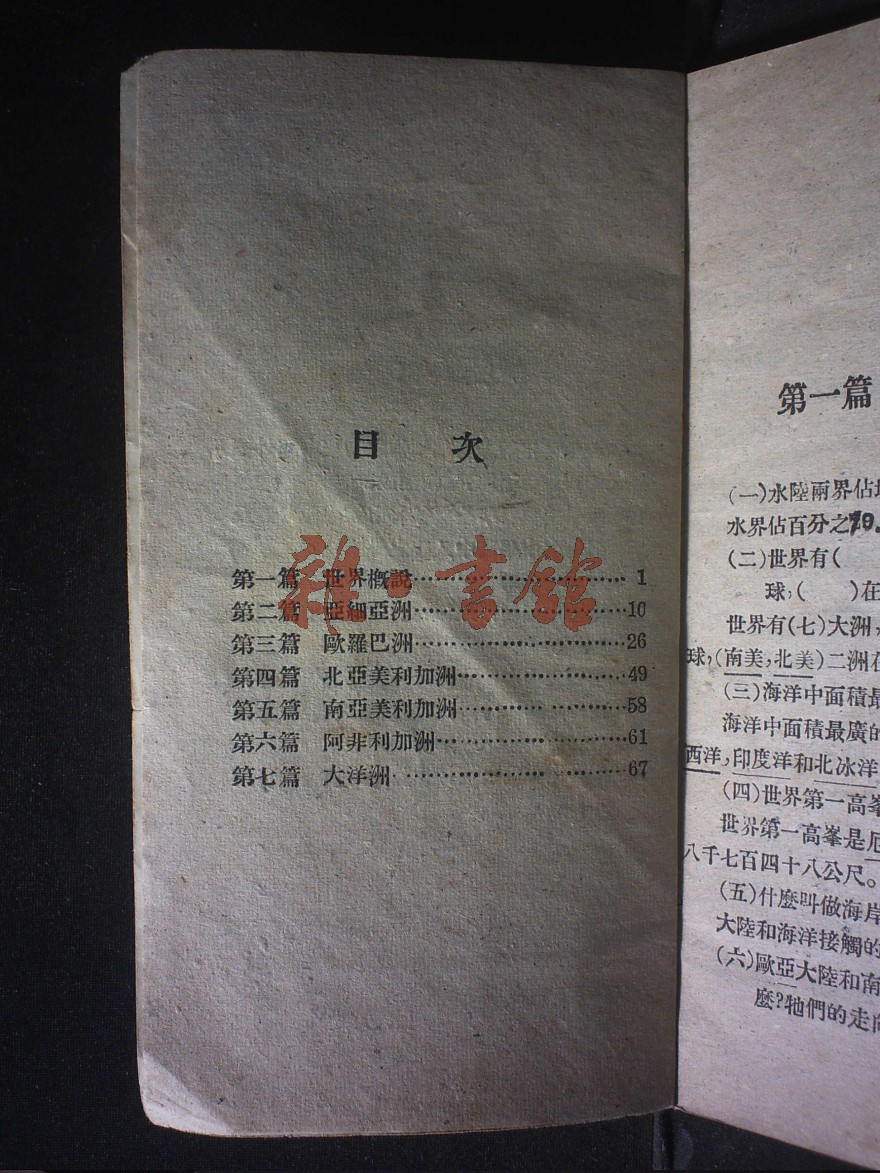 目 次
第一篇 世界概說……1
第二篇 亞細亞洲……10
第三篇 歐羅巴洲……26
第四篇 北亞美利加洲……49
第五篇 南亞美利加洲……58
第六篇 阿非利加洲……61
第七篇 大洋洲……67
雜·書館
第一篇
(一)水陸兩界佔
水界佔百分之79.
(二)世界有(
球,( )在
世界有(七)大洲,
球,(南美,北美)二洲在
(三)海洋中面積最
海洋中面積最廣的
西洋,印度洋和北冰洋
(四)世界第一高峯
世界第一高峯是厄
八千七百四十八公尺。
(五)什麼叫做海岸
大陸和海洋接觸的
(六)歐亞大陸和南
麼?牠們的走向